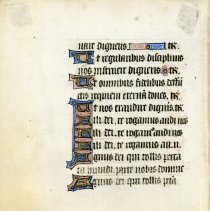 nare digneris te.
Ut regularibus disciplinis
nos instruere digneris te.
Ut omnibus fidelibus defunc
tis requiem eternã dones. te
Ut nos exaudire digneris. te.
fili dei. te rogamus audi nos
fili dei. te rogamus audi nos
fili dei. te rogamus au. n.
Agnus dei qui tollis pecca
ta mundi parce nobis domine
Agnus dei qui tollis pcta